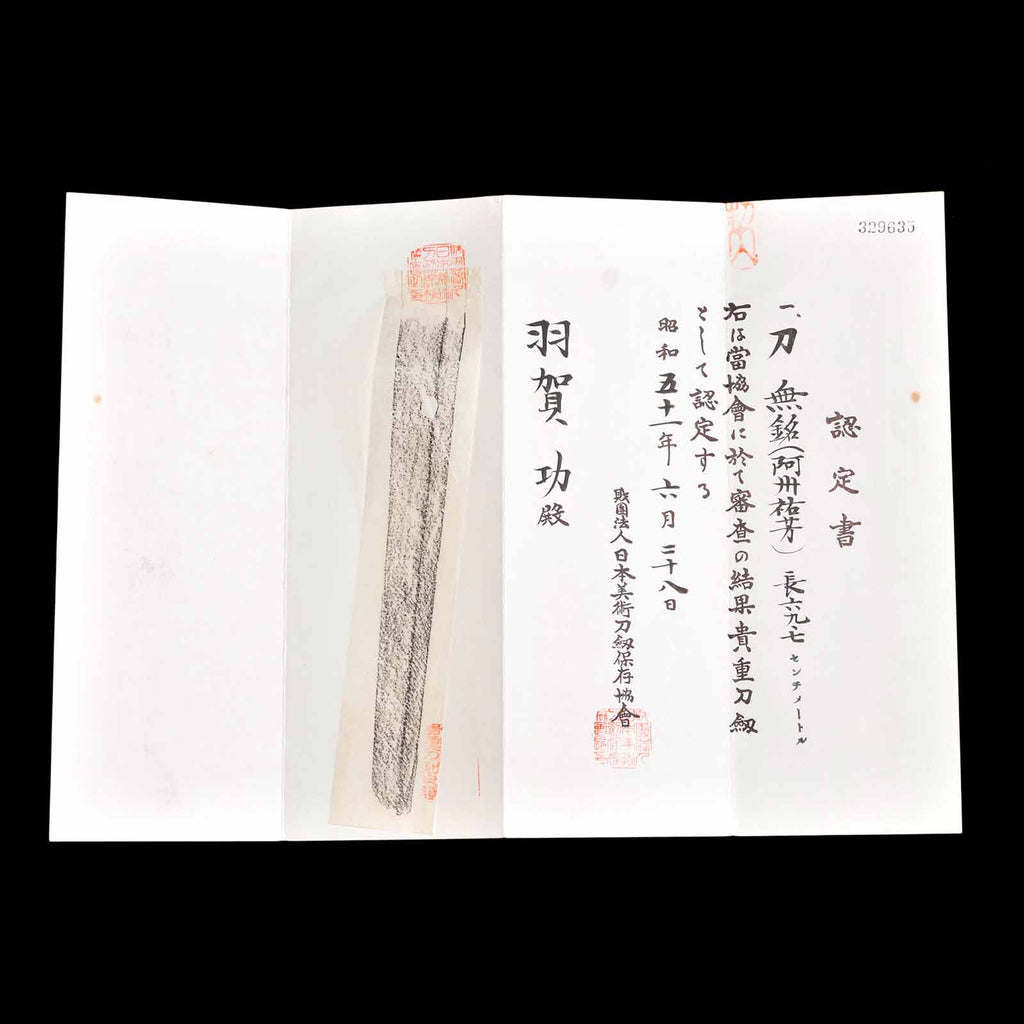 329635
認定書
一、刀 無銘(阿州祐芳) 長六九、七センチメートル
右は當協會に於て審査の結果貴重刀剱
として認定する
昭和五十一年六月二十八日
財團法人日本美術刀剱保存協會
羽賀 功殿